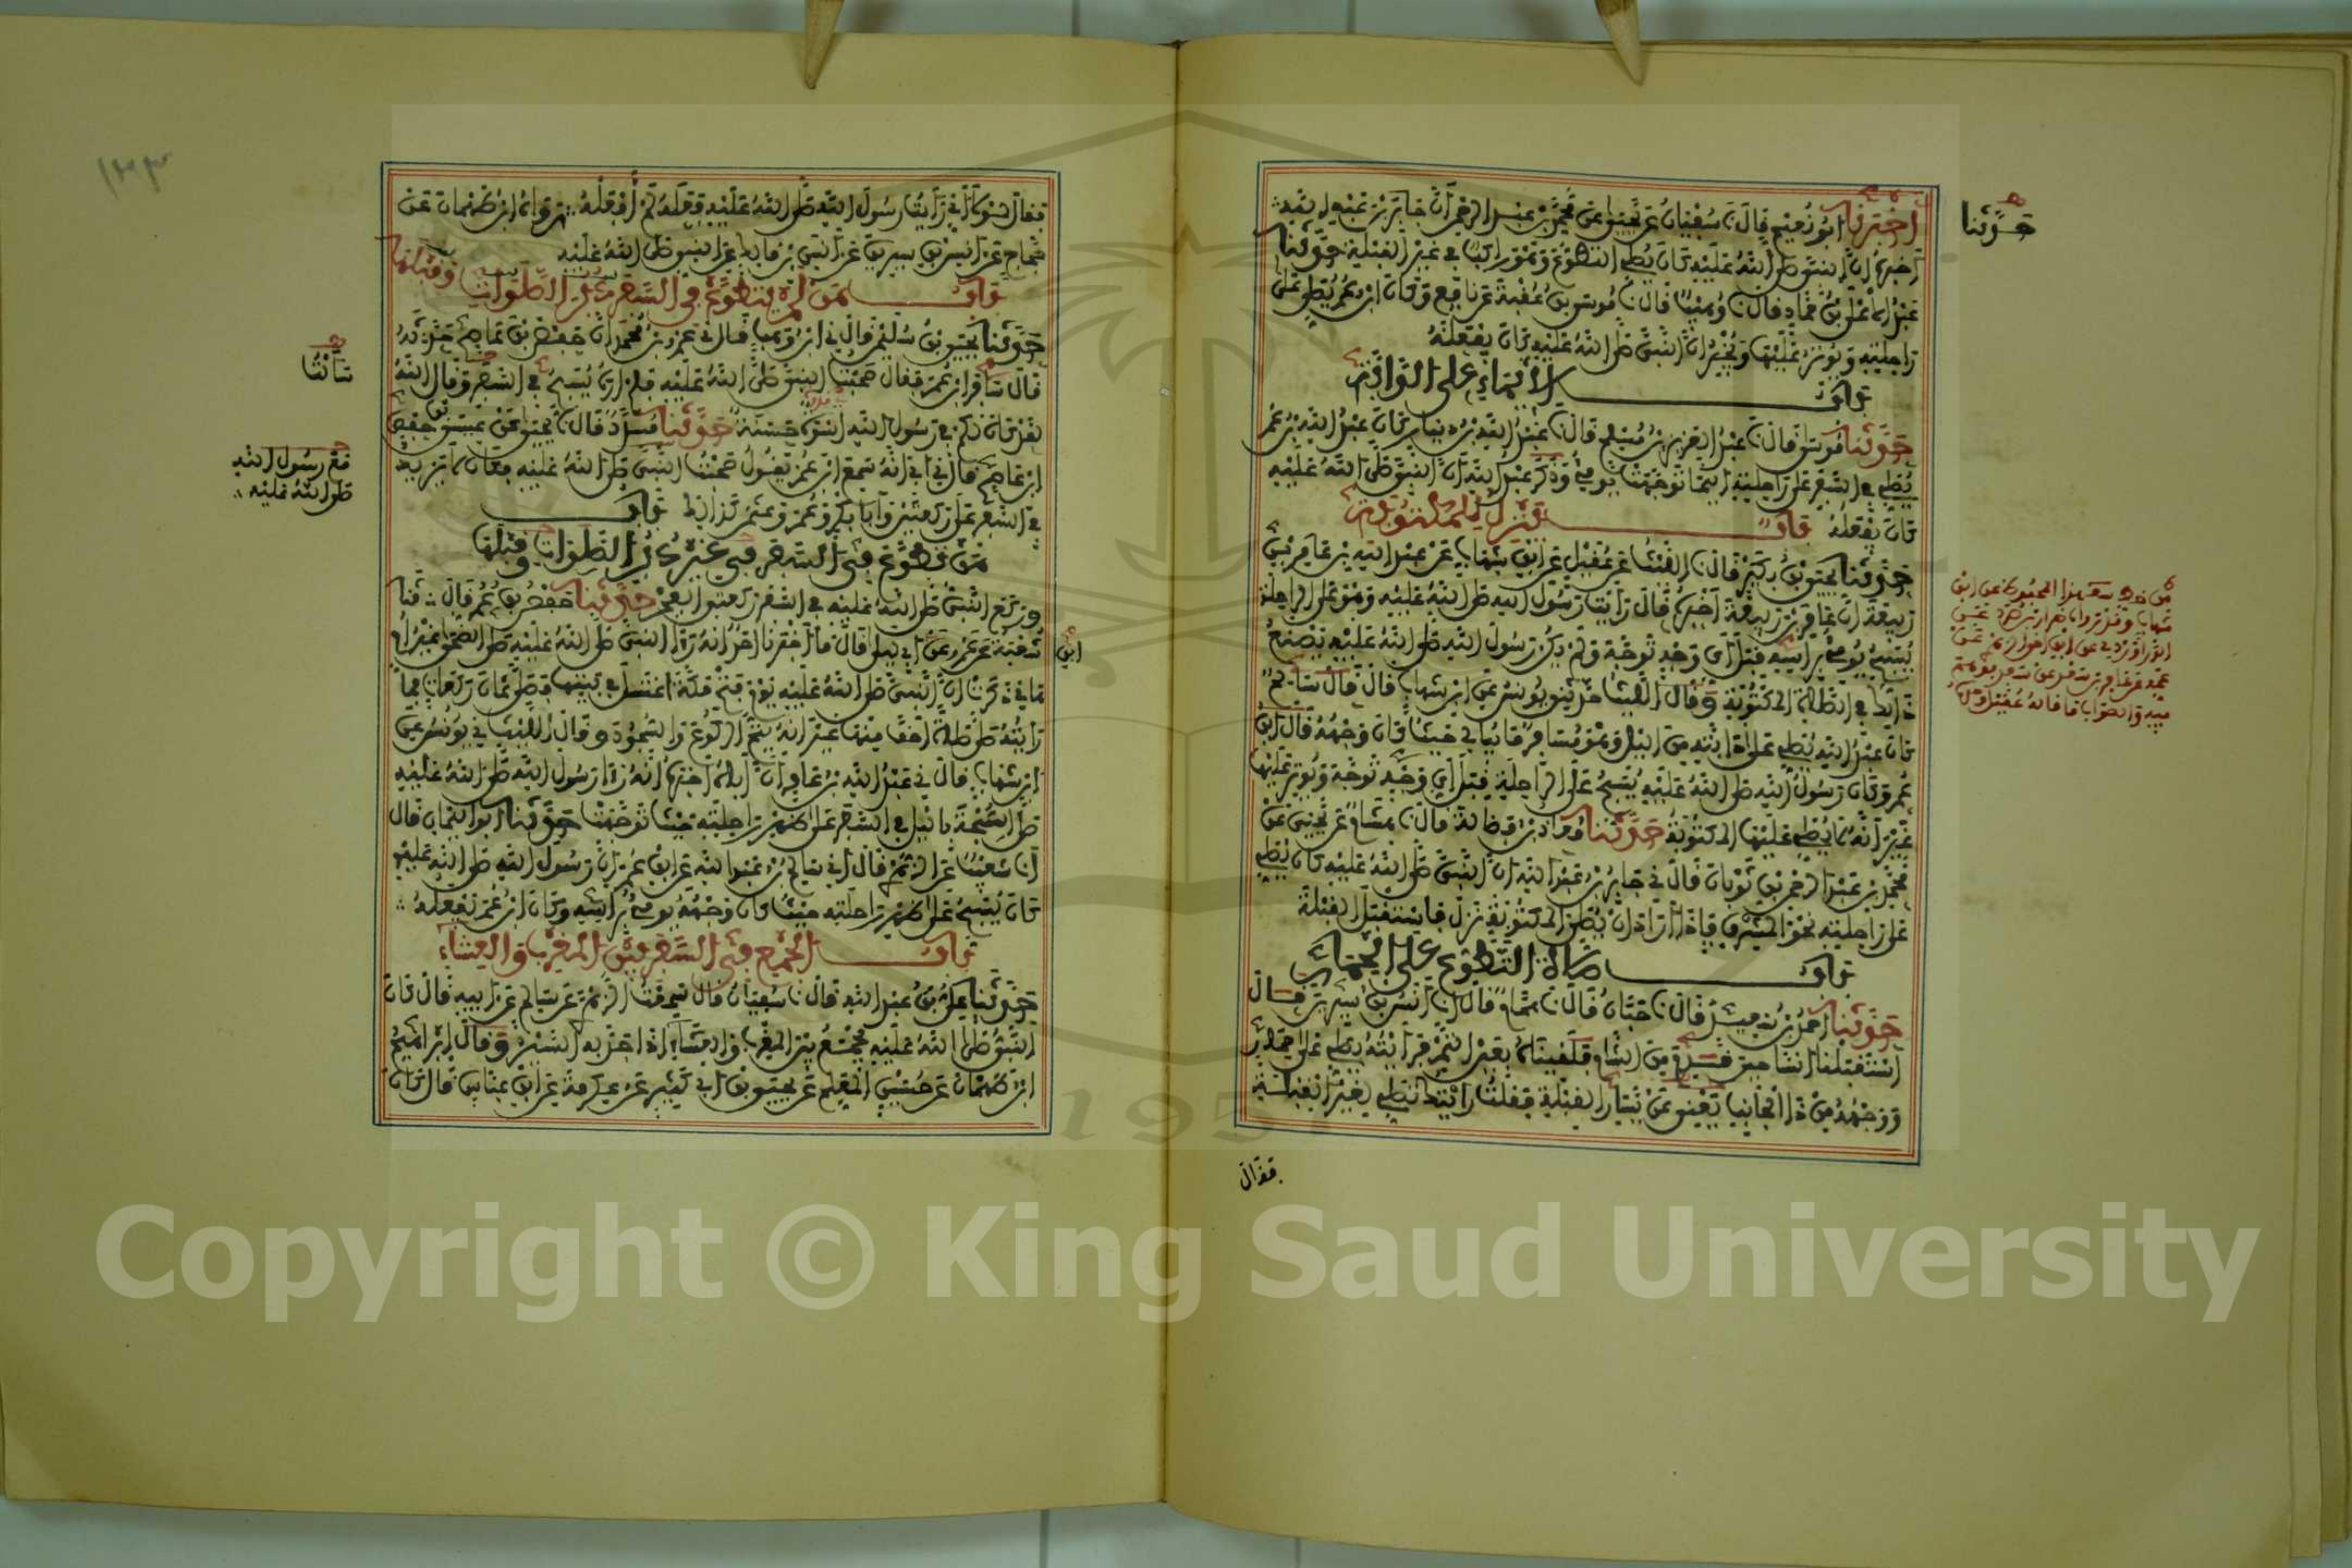 أخبرنا أبو نعيم قال نا سفيان عن يحيى عن محمد بن عبد الرحمن أن جابر بن عبد الله
أخبره أن النبي صلى الله عليه كان يصلي التطوع وهو راكب في غير القبلة حدثنا
عبد الأعلى بن حماد قال نا وهيب قال نا موسى بن عقبة عن نافع وكان ابن عمر يصلي على
راحلته ويوتر عليها ويخبر أن النبي صلى الله عليه كان يفعله
باب الإيماء على الدابة
حدثنا موسى قال نا عبد العزيز بن مسلم قال نا عبد الله بن دينار كان عبد الله بن عمر
يصلي في السفر على راحلته أينما توجهت يومئ وذكر عبد الله أن النبي صلى الله عليه
كان يفعله باب ينزل للمكتوبة
حدثنا يحيى بن بكير قال نا الليث عن عقيل عن ابن شهاب عن عبد الله بن عامر بن
ربيعة أن عامر بن ربيعة أخبره قال رأيت رسول الله صلى الله عليه وهو على الراحلة
يسبح يومئ برأسه قبل أي وجه توجه ولم يكن رسول الله صلى الله عليه يصنع
ذلك في الصلاة المكتوبة وقال الليث حدثني يونس عن ابن شهاب قال قال سالم
كان عبد الله يصلي على دابته من الليل وهو مسافر ما يبالي حيث كان وجهه قال ابن
عمر وكان رسول الله صلى الله عليه يسبح على الراحلة قبل أي وجه توجه ويوتر عليها
غير أنه لا يصلي عليها المكتوبة حدثنا معاذ بن فضالة قال نا هشام عن يحيى عن
محمد بن عبد الرحمن بن ثوبان قال ني جابر بن عبد الله أن النبي صلى الله عليه كان يصلي
على راحلته نحو المشرق فإذا أراد أن يصلي المكتوبة نزل فاستقبل القبلة
باب صلاة التطوع على الحمار
حدثنا أحمد بن سعيد قال نا حبان قال نا همام قال نا أنس بن سيرين قال
استقبلنا أنسا حين قدم من الشام فلقيناه بعين التمر فرأيته يصلي على حمار
ووجهه من ذا الجانب يعني عن يسار القبلة فقلت رأيتك تصلي لغير القبلة
فقال
حدثنا
فقال لولا أني رأيت رسول الله صلى الله عليه فعله لم أفعله رواه ابن طهمان عن
حجاج عن أنس بن سيرين عن أنس بن مالك عن النبي صلى الله عليه
باب من لم يتطوع في السفر دبر الصلوات وقبلها
حدثنا يحيى بن سليمن قال ني ابن وهب قال ني عمر بن محمد أن حفص بن عاصم حدثه
قال سافر ابن عمر فقال صحبت النبي صلى الله عليه فلم أره يسبح في السفر وقال الله
لقد كان لكم في رسول الله أسوة حسنة حدثنا مسدد قال نا يحيى عن عيسى بن حفص
ابن عاصم قال ني أبي أنه سمع ابن عمر يقول صحبت النبي صلى الله عليه فكان لا يزيد
في السفر على ركعتين وأبا بكر وعمر وعثمن كذلك باب
من تطوع في السفر في غير دبر الصلوات وقبلها
وركع النبي صلى الله عليه في السفر ركعتي الفجر حدثنا حفص بن عمر قال نا
شعبة عن عمرو عن أبي ليلى قال ما أخبرنا أحد أنه رأى النبي صلى الله عليه صلى الضحى غير أم
هانئ ذكرت أن النبي صلى الله عليه يوم فتح مكة اغتسل في بيتها فصلى ثمان ركعات فما
رأيته صلى صلاة أخف منها غير أنه يتم الركوع والسجود وقال الليث ني يونس عن
ابن شهاب قال ني عبد الله بن عامر أن أباه أخبره أنه رأى رسول الله صلى الله عليه
صلى السبحة بالليل في السفر على ظهر راحلته حيث توجهت حدثنا أبو اليمان قال
أنا شعيب عن الزهري قال أني سالم بن عبد الله عن ابن عمر أن رسول الله صلى الله عليه
كان يسبح على ظهر راحلته حيث كان وجهه يومئ برأسه وكان ابن عمر يفعله
باب الجمع في السفر بين المغرب والعشاء
حدثنا علي بن عبد الله قال نا سفيان قال سمعت الزهري عن سالم عن أبيه قال كان
النبي صلى الله عليه يجمع بين المغرب والعشاء إذا جد به السير وقال إبراهيم
ابن طهمان عن حسين المعلم عن يحيى بن أبي كثير عن عكرمة عن ابن عباس قال كان
سألت
مع رسول الله
صلى الله عليه
ابن
١٣٣
Copyright © King Saud University
1957